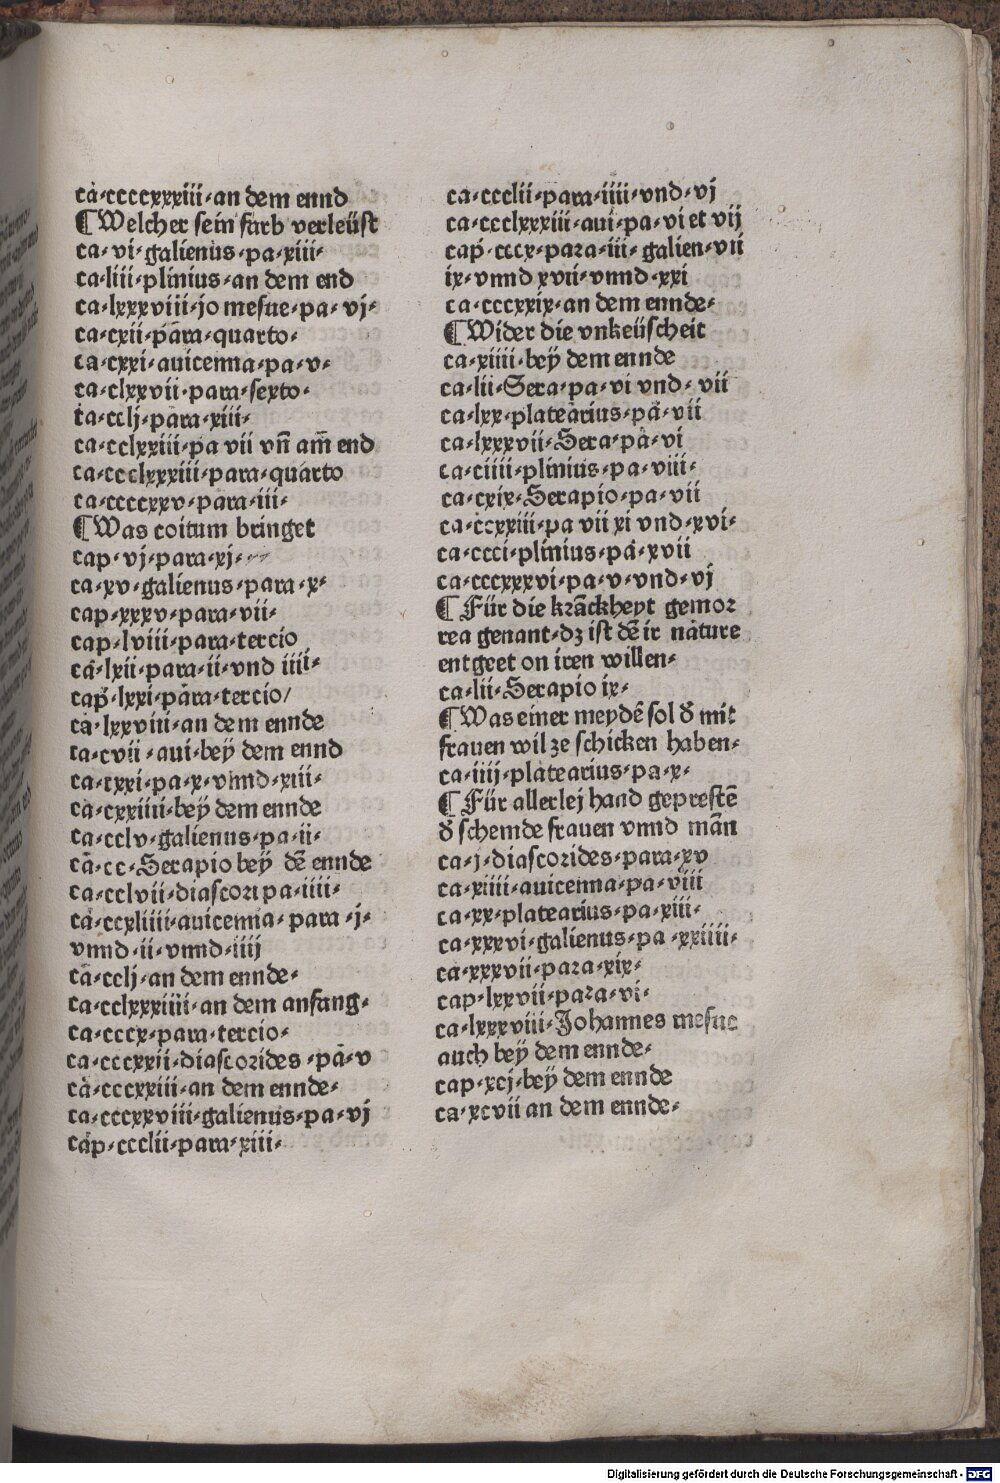 ca·ccccxxxiii·an dem ennd
¶Welcher sein farb verleüst
ca·vi·galienus·pa·xiii·
ca·liii·plinius·an dem end
ca·lxxxviii·jo mesue·pa·vj·
ca·cxii·para·quarto·
ca·cxxi·auicenna·pa·v·
ca·clxxvii·para·sexto·
ca·cclj·para·xiii·
ca·cclxxiii·pa vii vn̄ am̄ end
ca·ccclxxxiii·para·quarto
ca·ccccxxv·para·iii·
¶Was coitum bringet
cap·vj·para·xj·
ca·xv·galienus·para·x·
cap·xxxv·para·vii·
cap·lviii·para·tercio
ca·lxii·para·ii·vnd iiii·
cap·lxxi·para·tercio/
ca·lxxviii·an dem ennde
ca·cvii·aui·beÿ dem ennd
ca·cxxi·pa·x·vnnd·xiii·
ca·cxxiiii·beÿ dem ennde
ca·cclv·galienus·pa·ii·
ca·cc·Serapio beÿ dē ennde
ca·cclvii·diascori pa·iiii·
ca·ccxliiii·auicenna·para·j·
vnnd·ii·vnnd·iiij
ca·cclj·an dem ennde·
ca·cclxxxiiii·an dem anfang·
ca·cccx·para·tercio·
ca·cccxxii·diascorides·pa·v
ca·cccxxiii·an dem ennde·
ca·cccxxviii·galienus·pa·vj
cap·ccclii·para·xiii·
ca·ccclii·para·iiii·vnd·vj
ca·ccclxxxiii·aui·pa·vi et vij
cap·cccx·para·iii·galien·vii
ix·vnnd xvii·vnnd·xxi
ca·cccxxix·an dem ennde·
¶Wider die vnkeüscheit
ca·xiiii·beÿ dem ennde
ca·lii·Sera·pa·vi vnd·vii
ca·lxx·platearius·pa·vii
ca·lxxxvii·Sera·pa·vi
ca·ciiii·plinius·pa·viii·
ca·cxix·Serapio·pa·vii
ca·ccxxiii·pa vii xi vnd·xvi·
ca·ccci·plinius·pa·xvii
ca·cccxxxvi·pa·v·vnd·vj
¶Für die kranckheyt gemor
rea genant·dz ist dē ir nature
entgeet on iren willen·
ca·lii·Serapio ix·
¶Was einer meydē sol d̕ mit
frauen wil ze schicken haben·
ca·iiij·platearius·pa·x·
¶Für allerlej hand geprestē
d̕ schemde frauen vnnd man̄
ca·j·diascorides·para·xv
ca·xiiii·auicenna·pa·viii
ca·xx·platearius·pa·xiii·
ca·xxxvi·galienus·pa·xxiiii·
ca·xxxvii·para·xix·
cap·lxxvii·para·vi·
ca·lxxxviii·Johannes mesue
auch beÿ dem ennde·
cap·xcj·beÿ dem ennde
ca·xcvii an dem ennde·
Digitalisierung gefördert durch die Deutsche Forschungsgemeinschaft - DFG